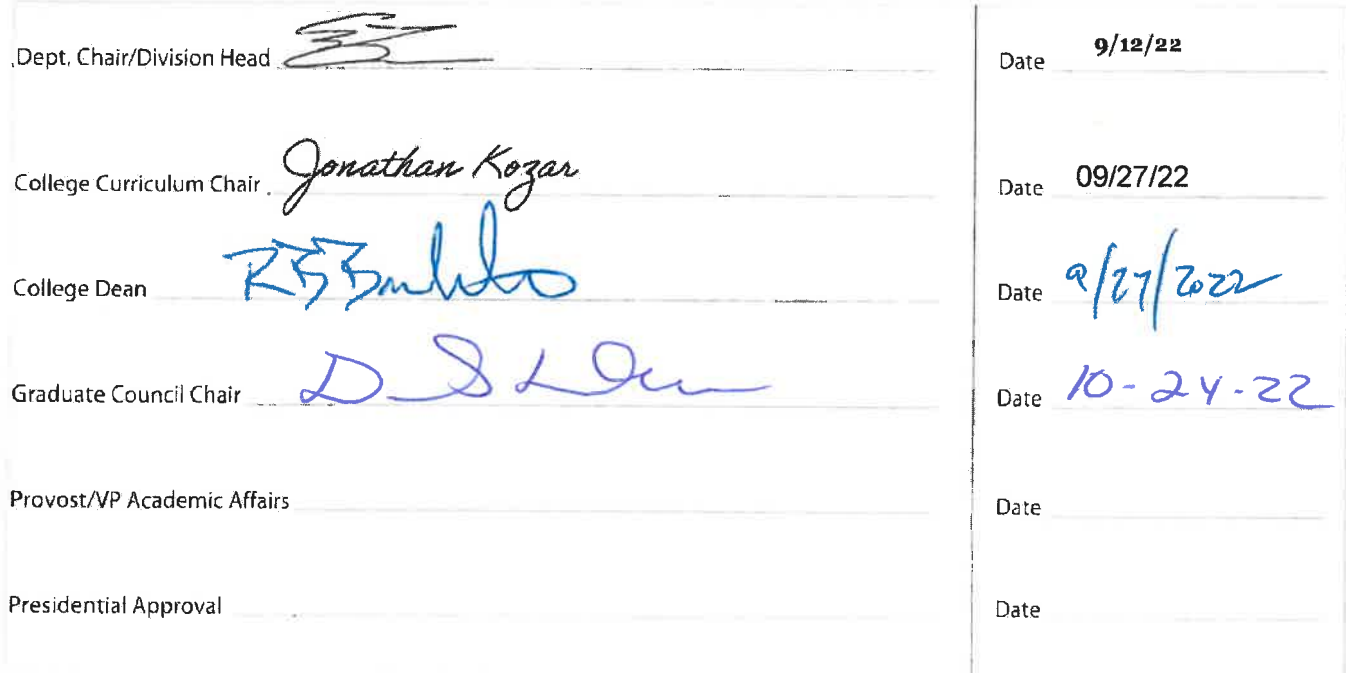 Dept. Chair/Division Head Date 9/12/22
College Curriculum Chair Jonathan Kozar Date 09/27/22
College Dean Date 9/27/2022
Graduate Council Chair Date 10-24-22
Provost/VP Academic Affairs Date
Presidential Approval Date